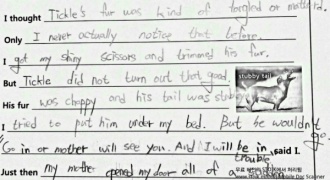 I thought Tickle's fur was kind of tangled or matted.
Only I never actually notice that before.
I got my shiny scissors and trimmed his fur.
But Tickle did not turn out that good.
stubby tail
His fur was choppy and his tail was stubby
I tried to put him under my bed. But he wouldn't go.
Go in or mother will see you. And I will be in trouble, said I.
Just then my mother opened my door all of a